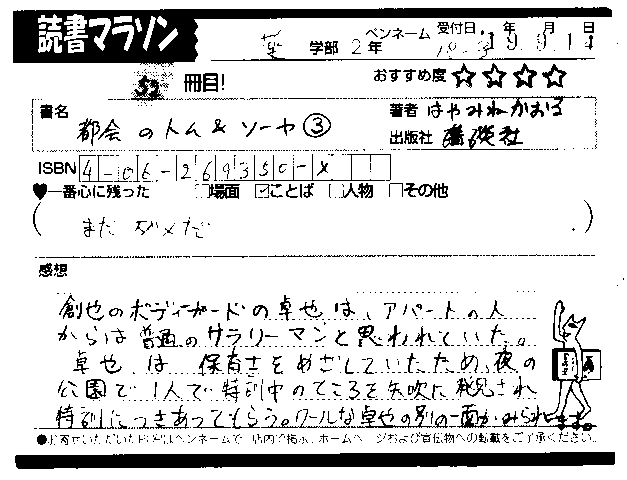 読書マラソン
薬 学部 2年 ペンネーム 受付日 年 月 日
52 冊目! おすすめ度 ☆☆☆☆
書名 都会のトム&ソーヤ③
著者 はやみねかおる
出版社 講談社
ISBN 4-06-269350-X
♥一番心に残った □場面 ☑ことば □人物 □その他
(まだ ダメだ)
感想
創也のボディーガードの卓也は、アパートの人
からは普通のサラリーマンと思われていた。
卓也は保育士をめざしていたため、夜の
公園で1人で特訓中のところを矢吹に発見され
特訓につきあってもらう。クールな卓也の別の一面がみられます。
●お寄せいただいたPOPはペンネームで、店内で掲示、ホームページおよび宣伝物への転載をご了承ください。